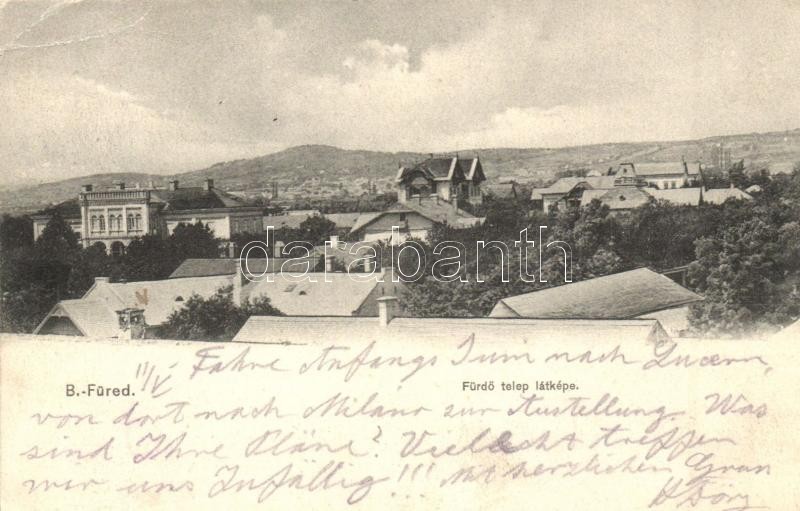 darabanth
B.-Füred.
Fürdő telep látképe.
11/V Fahre Anfangs Juni nach Luzern,
von dort nach Milano zur Austellung. Was
sind Ihre Pläne? Vielleicht treffen
wir uns Zufällig!!! Mit herzlichen